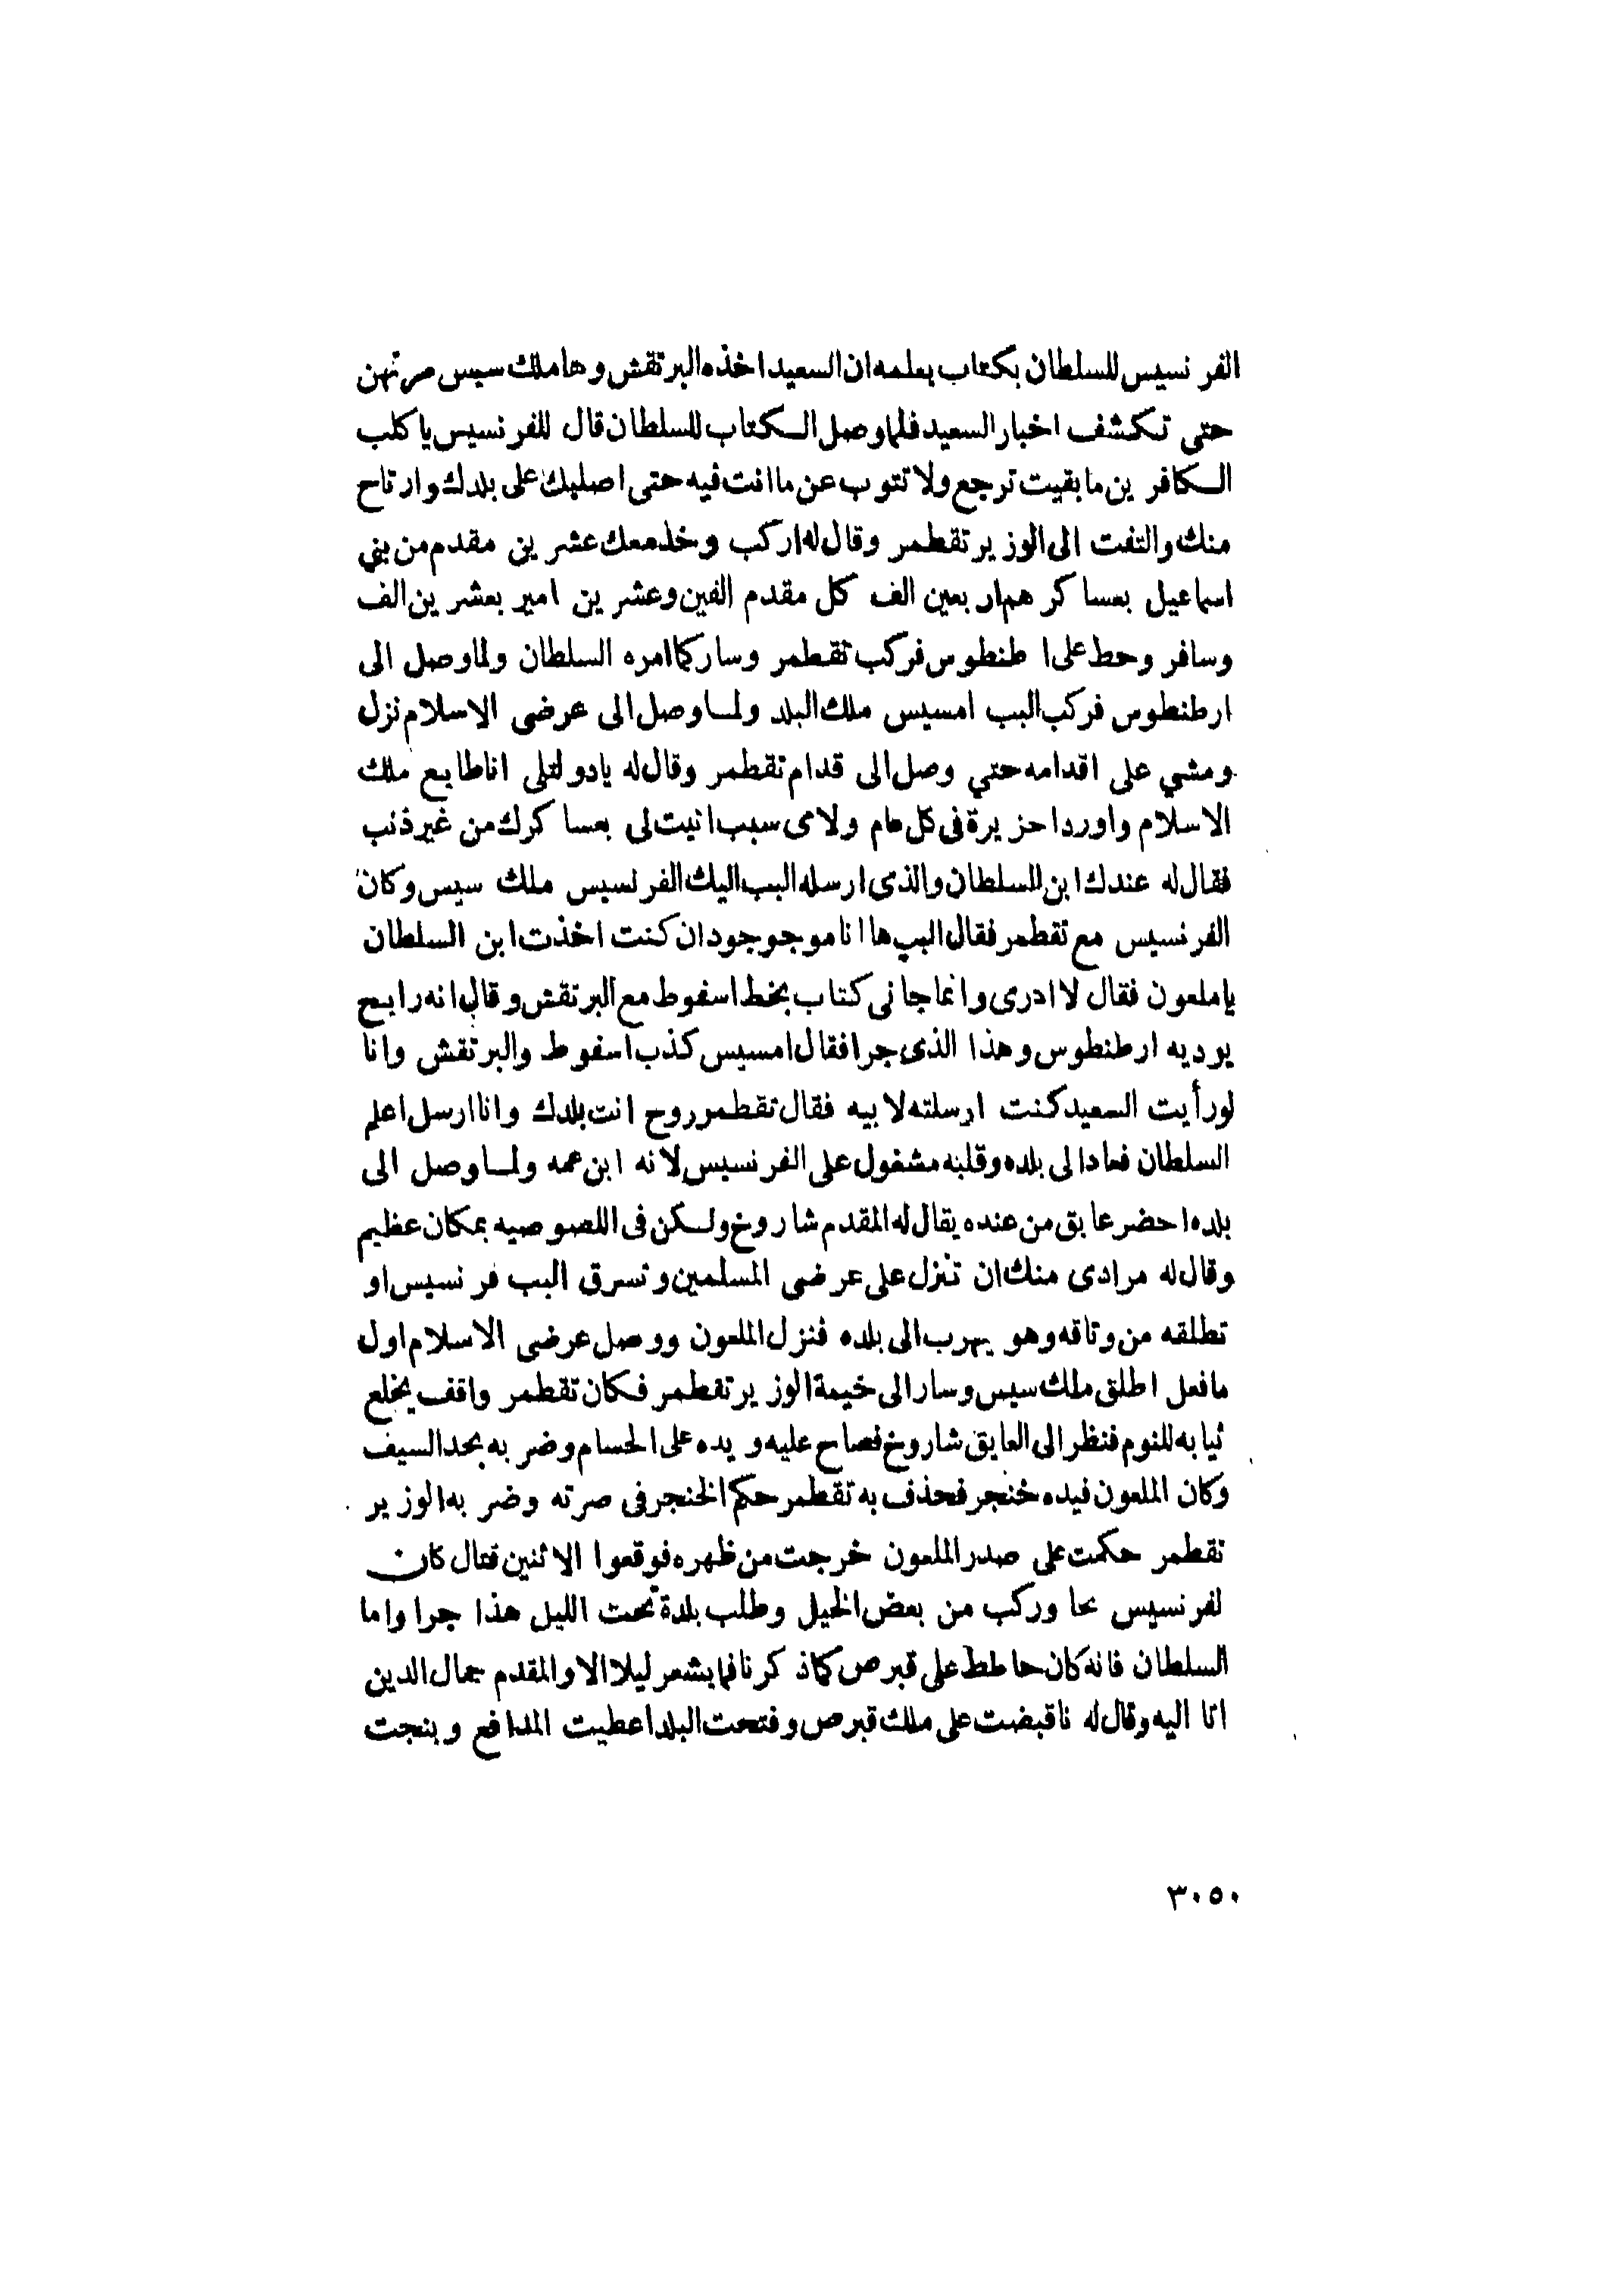 الفرنسيس للسلطان بكتاب يعلمه ان السعيد اخذه البرتقش وها ملك سيس مرتهن
حتى تكشف اخبار السعيد فلما وصل الكتاب للسلطان قال للفرنسيس يا كلب
الكافرين ما بقيت ترجع ولا تتوب عن ما انت فيه حتى اصلبك على بلدك وارتاح
منك والتفت الى الوزير تقطمر وقال له اركب وخذ معك عشرين مقدم من بني
اسماعيل بعساكرهم اربعين الف كل مقدم الفين وعشرين امير بعشرين الف
وسافر وحط على ا طنطوس فركب تقطمر وسار كما امره السلطان ولما وصل الى
ارطنطوس فركب البب امسيس ملك البلد ولما وصل الى عرضى الاسلام نزل
ومشي على اقدامه حتي وصل الى قدام تقطمر وقال له يادولتلى انا طايع ملك
الاسلام واورد احزيرة فى كل عام ولاى سبب اتيت لى بعساكرك من غير ذنب
فقال له عندك ابن السلطان والذى ارسله البب اليك الفرنسيس ملك سيس وكان
الفرنسيس مع تقطمر فقال البب ها انا موجوجود ان كنت اخذت ابن السلطان
ياملعون فقال لا ادرى وانما جانى كتاب بخط اسفوط مع البرتقش وقال انه رايح
يوديه ارطنطوس وهذا الذى جرا فقال امسيس كذب اسفوط والبرتقش وانا
لو رأيت السعيد كنت ارسلته لابيه فقال تقطمر روح انت بلدك وانا ارسل اعلم
السلطان فعاد الى بلده وقلبه مشغول على الفرنسيس لانه ابن عمه ولما وصل الى
بلده احضر عايق من عنده يقال له المقدم شاروخ ولكن فى اللصوصيه بمكان عظيم
وقال له مرادى منك ان تنزل على عرضى المسلمين وتسرق البب فرنسيس او
تطلقه من وتاقه وهو يهرب الى بلده فنزل الملعون ووصل عرضى الاسلام اول
مافعل اطلق ملك سيس وسار الى خيمة الوزير تقطمر فكان تقطمر واقف يخلع
ثيابه للنوم فنظر الى العايق شاروخ فصاح عليه ويده على الحسام وضربه بحد السيف
وكان الملعون فيده خنجر فحذف به تقطمر حكم الخنجر فى صرته وضربه الوزير
تقطمر حكمت على صدر الملعون خرجت من ظهره فوقعوا الاثنين قتال كان
لفرنسيس نحا وركب من بعض الخيل وطلب بلدة تحت الليل هذا جرا واما
السلطان فانه كان حاطط على قبرص كما ذكرنا فما يشعر ليلا الا والمقدم جمال الدين
اتا اليه وقال له نا قبضت على ملك قبرص وفتحت البلد اعطيت المدافع وبنجت
٣٠٥٠